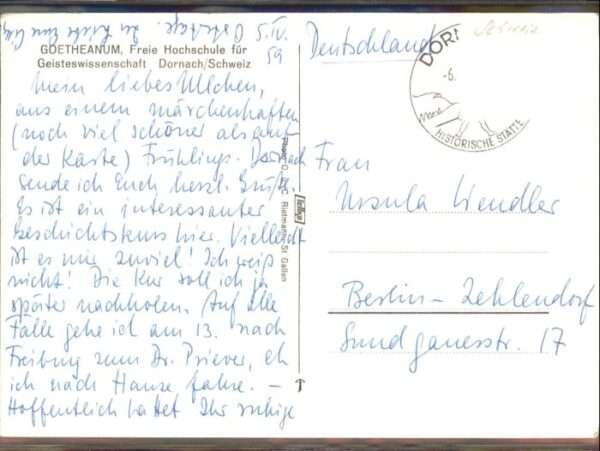 5.IV.
59
GOETHEANUM, Freie Hochschule für
Geisteswissenschaft Dornach/Schweiz
Mein liebes Ullchen,
aus einem märchenhaften
(noch viel schöner als auf
der Karte) Frühlings-Dornach
sende ich Euch herzl. Grüße.
Es ist ein interessanter
Geschichtskurs hier. Vielleicht
ist es nur zuviel! Ich weiß
nicht! Die Kur soll ich ja
später nachholen. Auf alle
Fälle gehe ich am 13. nach
Freiburg zum Dr. Priever, eh
ich nach Hause fahre. –
Hoffentlich hattet Ihr ruhige
Ostertage.
Rietmann, St. Gallen
Deutschland
DOR
-6.
HISTORISCHE STÄTTE
Frau
Ursula Wendler
Berlin-Zehlendorf
Sundgauerstr. 17